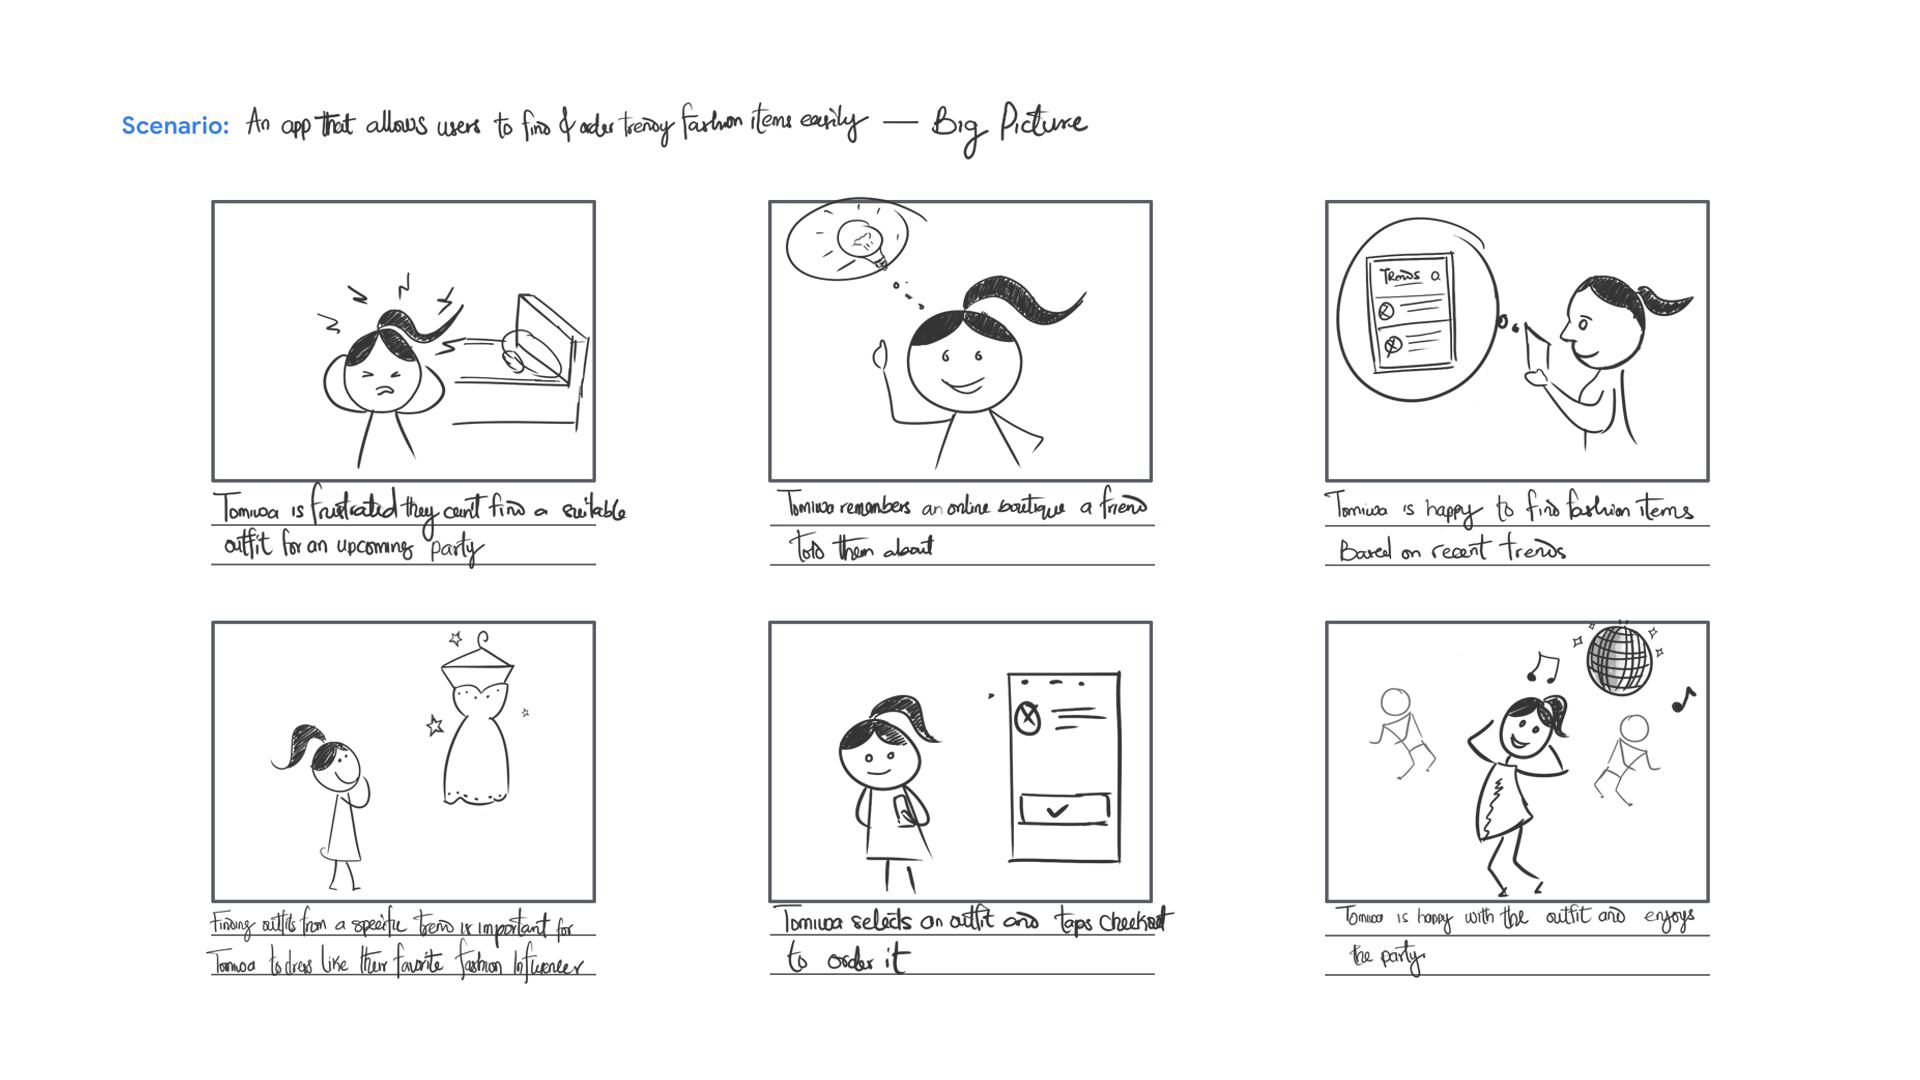 Scenario: An app that allows users to find & order trendy fashion items easily — Big Picture
Trends
Tomiwa is frustrated they can't find a suitable
outfit for an upcoming party
Tomiwa remembers an online boutique a friend
told them about
Tomiwa is happy to find fashion items
Based on recent trends
Finding outfits from a specific trend is important for
Tomiwa to dress like their favorite fashion Influencer
Tomiwa selects an outfit and taps checkout
to order it
Tomiwa is happy with the outfit and enjoys
the party.